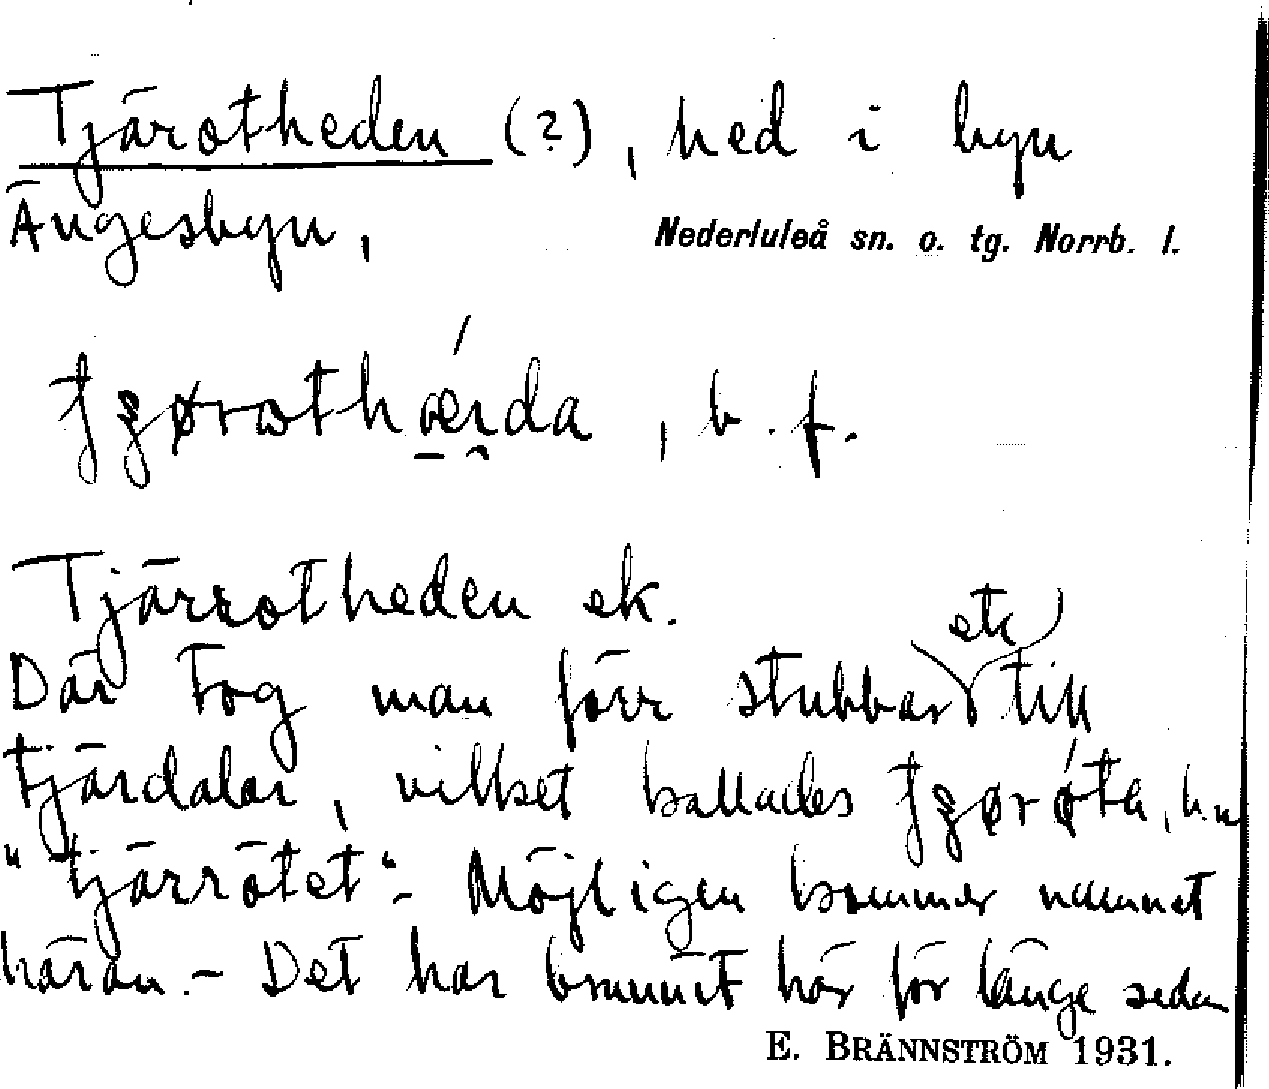 Tjärotheden (?), hed i byn
Ängesbyn, Nederluleå sn. o. tg. Norrb. l.
, b. f.
Tjärrotheden ek.
Där tog man förr stubbar etc till
tjärdalar, vilket kallades
"tjärrötet". Möjligen kommer namnet
härav. – Det har brunnit här för länge sedan
E. BRÄNNSTRÖM 1931.